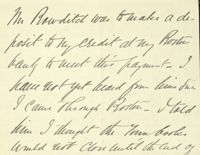 Mr Bowditch was to make a de-
posit to my credit at my Boston
bank to meet this payment - I
have not yet heard from him tho
I came through Boston - I told
him I thought the Town books
would not close until the end of